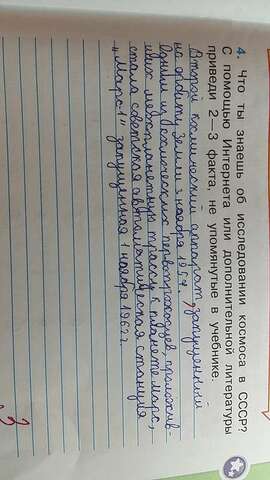 4. Что ты знаешь об исследовании космоса в СССР?
С помощью Интернета или дополнительной литературы
приведи 2—3 факта, не упомянутые в учебнике.
Второй космический аппарат, запущенный
на орбиту Земли 3 ноября 1957.
Одним из космических первопроходцев, проложив-
ших межпланетную трассу к планете Марс,
стала советская автоматическая станция
"Марс-1" запущенная 1 ноября 1962 г.